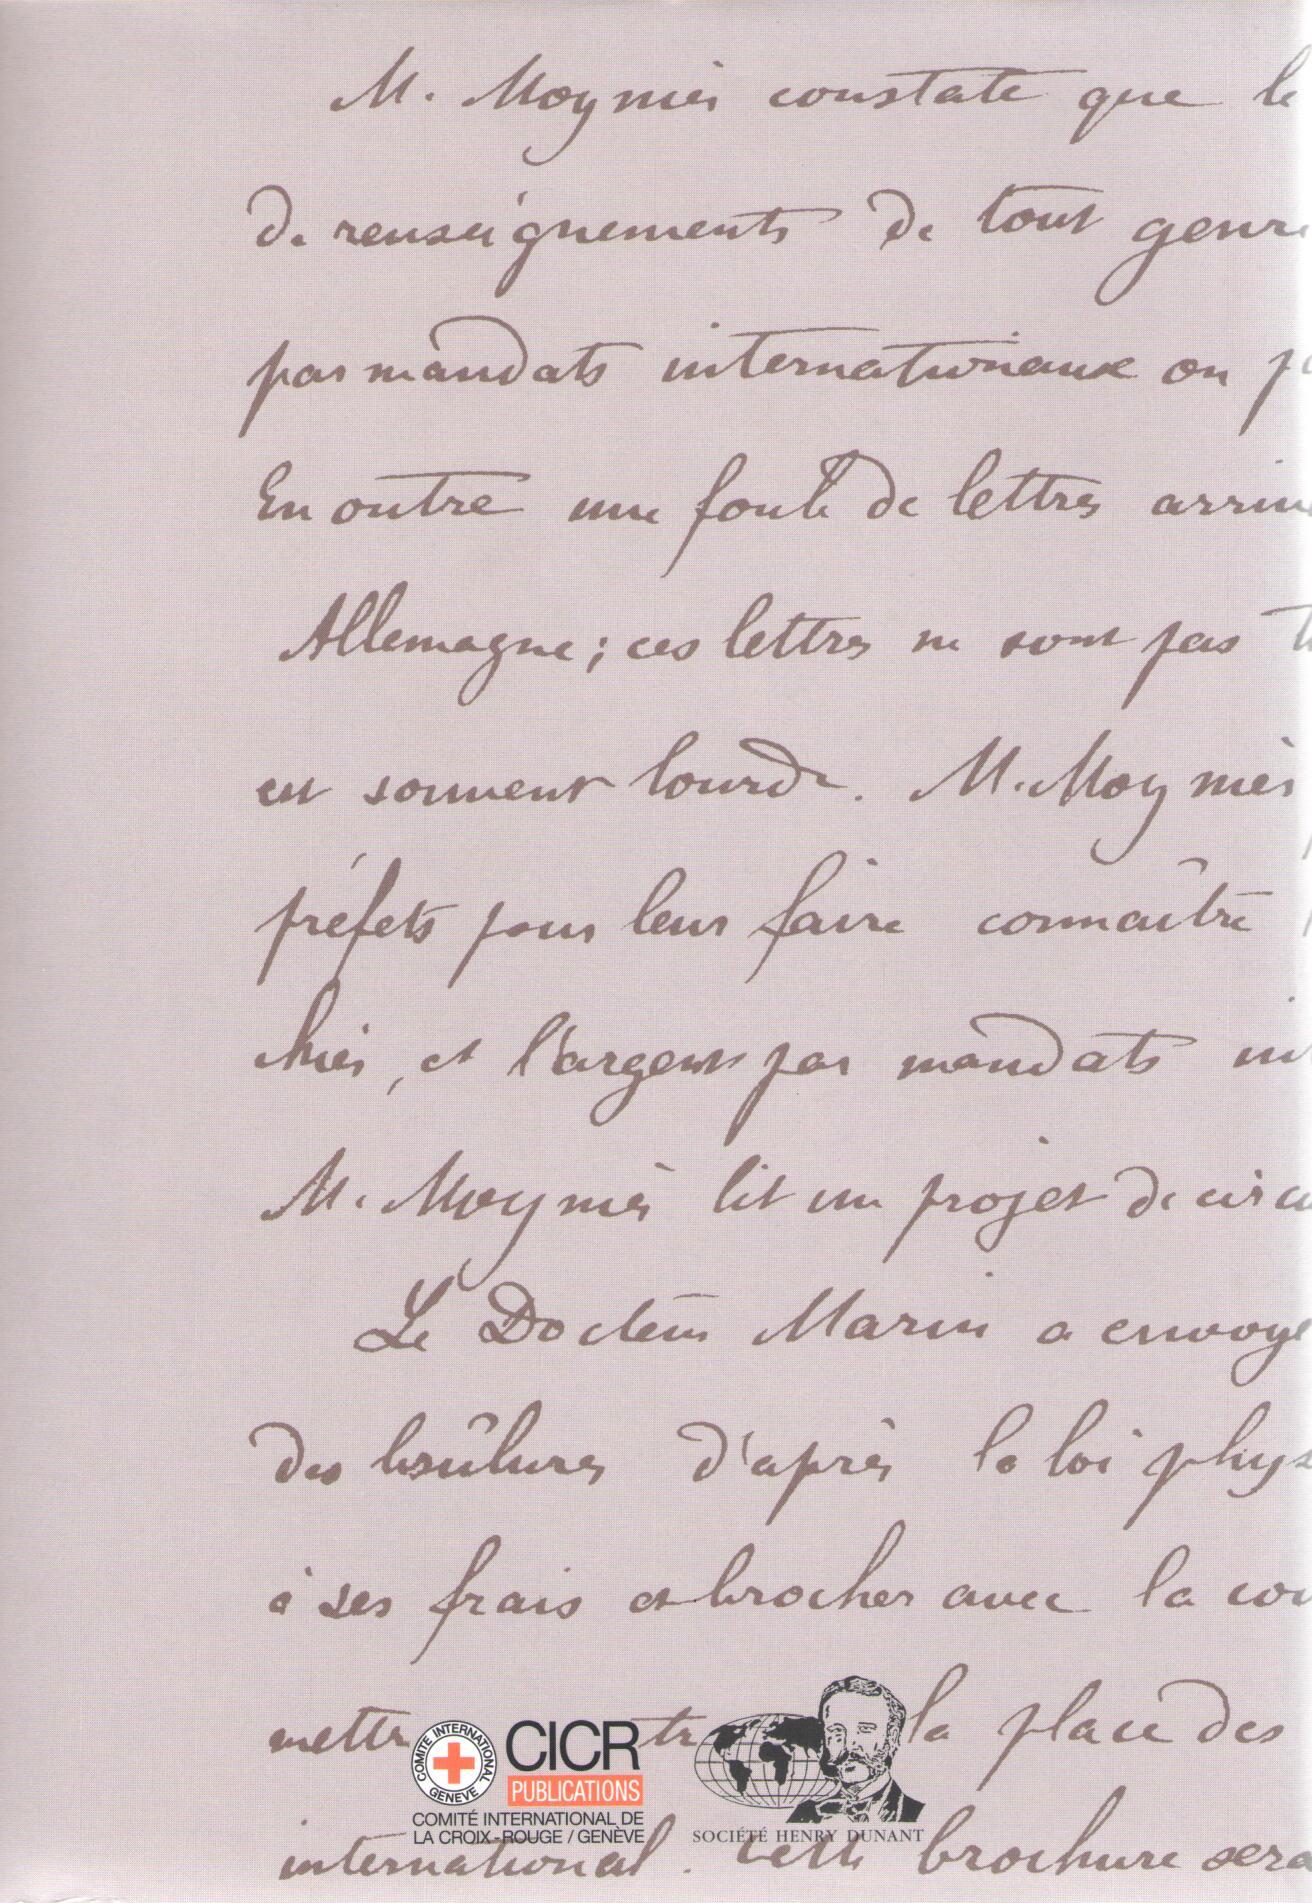 M. Moynier constate que le
de renseignements de tout genre
par mandats internationaux ou p
En outre une foule de lettres arrive
Allemagne; ces lettres ne sont pas t
est souvent lourde. M. Moynier
préfets pour leur faire connaître
et l'argent par mandats in
M. Moynier lit un projet de circu
Le Docteur Marin a envoyé
des brûlures d'après la loi phys
à ses frais et brocher avec la cou
mettr tr la place des
COMITE INTERNATIONAL GENEVE
CICR
PUBLICATIONS
COMITÉ INTERNATIONAL DE
LA CROIX-ROUGE / GENÈVE
SOCIÉTÉ HENRY DUNANT
international. Cette brochure sera